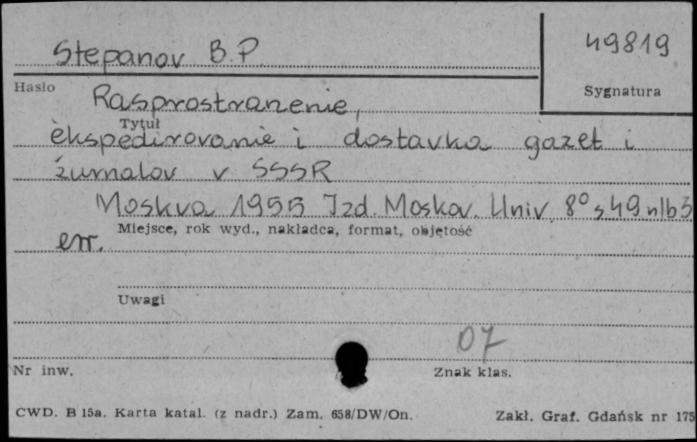 Stepanov B.P.
49819
Hasło
Sygnatura
Rasprostranenie,
Tytuł
èkspedirovanie i dostavka gazet i
žurnalov v SSSR
Moskva 1955 Izd. Moskov. Univ. 8° s 49 nlb 3
Miejsce, rok wyd., nakładca, format, objętość
err.
Uwagi
07
Nr inw.
Znak klas.
CWD. B 15a. Karta katal. (z nadr.) Zam. 658/DW/On.
Zakł. Graf. Gdańsk nr 175